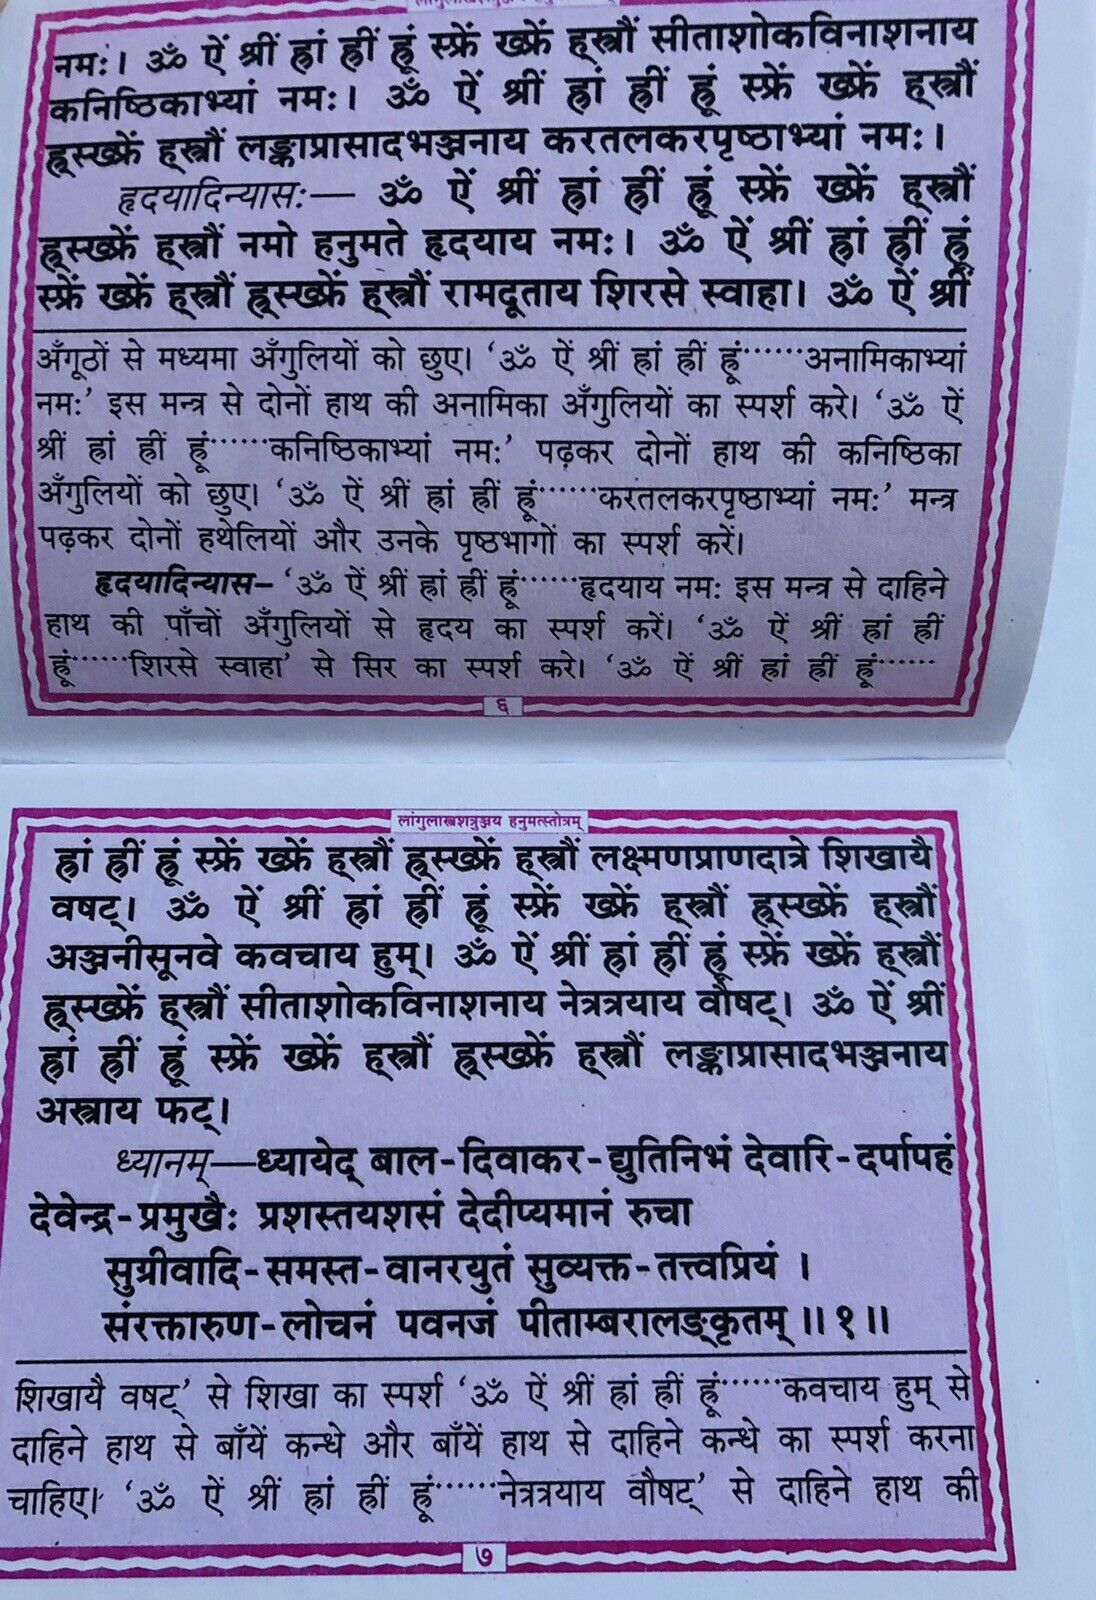 नमः। ॐ ऐं श्रीं ह्रां ह्रीं ह्रूं स्फ्रें ख्फ्रें ह्स्त्रौं सीताशोकविनाशनाय
कनिष्ठिकाभ्यां नमः। ॐ ऐं श्रीं ह्रां ह्रीं ह्रूं स्फ्रें ख्फ्रें ह्स्त्रौं
ह्स्ख्फ्रें ह्स्त्रौं लङ्काप्रासादभञ्जनाय करतलकरपृष्ठाभ्यां नमः।
हृदयादिन्यासः— ॐ ऐं श्रीं ह्रां ह्रीं ह्रूं स्फ्रें ख्फ्रें ह्स्त्रौं
ह्स्ख्फ्रें ह्स्त्रौं नमो हनुमते हृदयाय नमः। ॐ ऐं श्रीं ह्रां ह्रीं ह्रूं
स्फ्रें ख्फ्रें ह्स्त्रौं ह्स्ख्फ्रें ह्स्त्रौं रामदूताय शिरसे स्वाहा। ॐ ऐं श्रीं
अँगूठों से मध्यमा अँगुलियों को छुए। ‘ॐ ऐं श्रीं ह्रां ह्रीं ह्रूं······अनामिकाभ्यां
नमः’ इस मन्त्र से दोनों हाथ की अनामिका अँगुलियों का स्पर्श करे। ‘ॐ ऐं
श्रीं ह्रां ह्रीं ह्रूं······कनिष्ठिकाभ्यां नमः’ पढ़कर दोनों हाथ की कनिष्ठिका
अँगुलियों को छुए। ‘ॐ ऐं श्रीं ह्रां ह्रीं ह्रूं······करतलकरपृष्ठाभ्यां नमः’ मन्त्र
पढ़कर दोनों हथेलियों और उनके पृष्ठभागों का स्पर्श करें।
हृदयादिन्यास– ‘ॐ ऐं श्रीं ह्रां ह्रीं ह्रूं······हृदयाय नमः इस मन्त्र से दाहिने
हाथ की पाँचों अँगुलियों से हृदय का स्पर्श करें। ‘ॐ ऐं श्रीं ह्रां ह्रीं
ह्रूं······शिरसे स्वाहा’ से सिर का स्पर्श करे। ‘ॐ ऐं श्रीं ह्रां ह्रीं ह्रूं······
६
लांगुलास्त्रशत्रुञ्जय हनुमत्स्तोत्रम्
ह्रां ह्रीं ह्रूं स्फ्रें ख्फ्रें ह्स्त्रौं ह्स्ख्फ्रें ह्स्त्रौं लक्ष्मणप्राणदात्रे शिखायै
वषट्। ॐ ऐं श्रीं ह्रां ह्रीं ह्रूं स्फ्रें ख्फ्रें ह्स्त्रौं ह्स्ख्फ्रें ह्स्त्रौं
अञ्जनीसूनवे कवचाय हुम्। ॐ ऐं श्रीं ह्रां ह्रीं ह्रूं स्फ्रें ख्फ्रें ह्स्त्रौं
ह्स्ख्फ्रें ह्स्त्रौं सीताशोकविनाशनाय नेत्रत्रयाय वौषट्। ॐ ऐं श्रीं
ह्रां ह्रीं ह्रूं स्फ्रें ख्फ्रें ह्स्त्रौं ह्स्ख्फ्रें ह्स्त्रौं लङ्काप्रासादभञ्जनाय
अस्त्राय फट्।
ध्यानम्—ध्यायेद् बाल-दिवाकर-द्युतिनिभं देवारि-दर्पापहं
देवेन्द्र-प्रमुखैः प्रशस्तयशसं देदीप्यमानं रुचा
सुग्रीवादि-समस्त-वानरयुतं सुव्यक्त-तत्त्वप्रियं ।
संरक्तारुण-लोचनं पवनजं पीताम्बरालङ्कृतम् ॥ १ ॥
शिखायै वषट्’ से शिखा का स्पर्श ‘ॐ ऐं श्रीं ह्रां ह्रीं ह्रूं······कवचाय हुम् से
दाहिने हाथ से बाँयें कन्धे और बाँयें हाथ से दाहिने कन्धे का स्पर्श करना
चाहिए। ‘ॐ ऐं श्रीं ह्रां ह्रीं ह्रूं······नेत्रत्रयाय वौषट्’ से दाहिने हाथ की
७